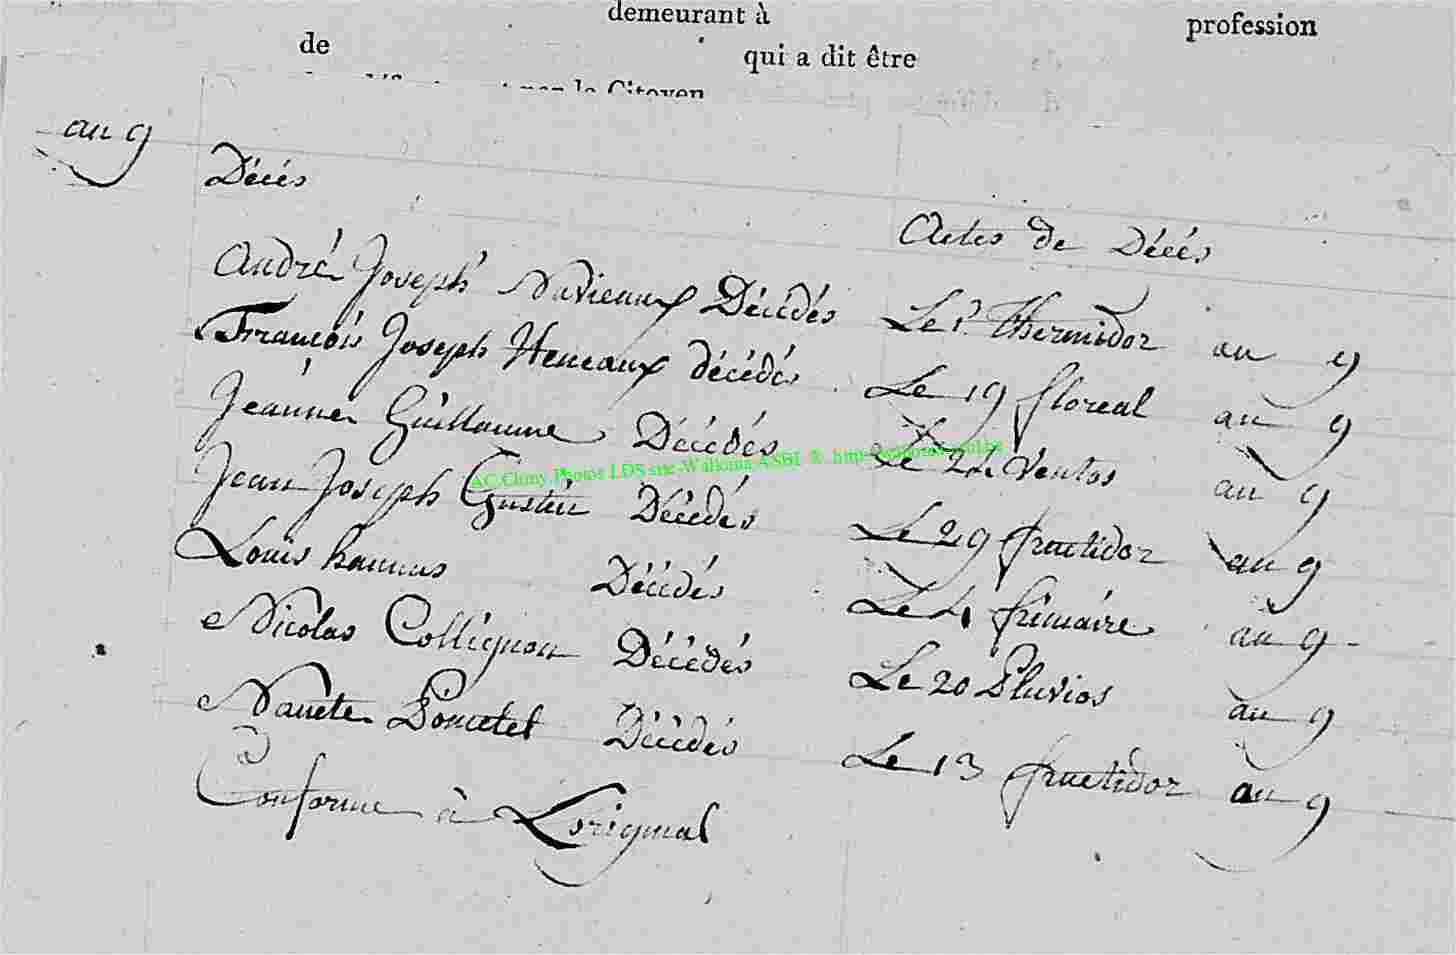 demeurant à profession
de qui a dit être
par le Citoyen
an 9
Décés
Actes de Décés
André Joseph Navieaux Décédés Le 1r thermidor an 9
François Joseph Heneaux décédés Le 19 floreal an 9
Jeanne Guillaume Décédés Le 24 Ventos an 9
AC.Cluny.Photos LDS site-Wallonia ASBL ®
Jean Joseph Gustin Décédés Le 29 fructidor an 9
Louis hannus Décédés Le 4 frimaire an 9
Nicolas Collignon Décédés Le 20 Pluvios an 9
Nanete Décédés Le 13 fructidor an 9
Conforme à Lorignal